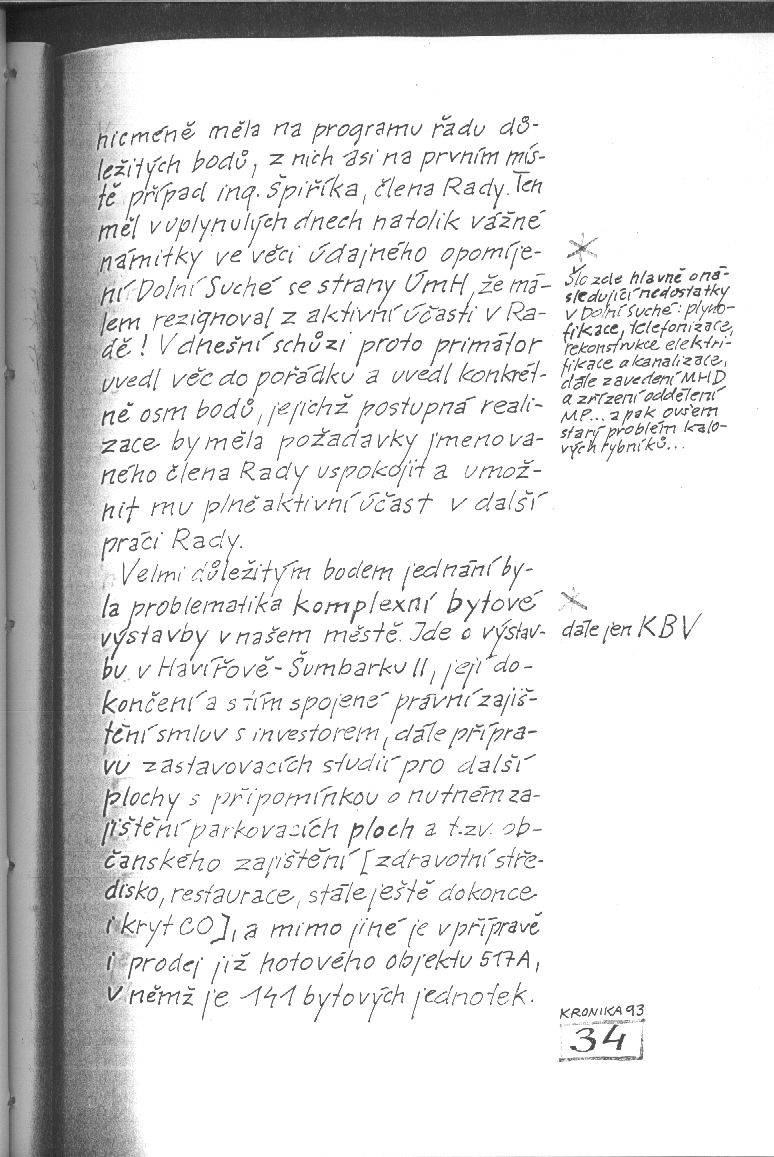 nicméně měla na programu řadu dů-
ležitých bodů, z nich asi na prvním mís-
tě případ ing. Špiříka, člena Rady. Ten
měl v uplynulých dnech natolik vážné
námitky ve věci údajného opomíje-
ní Dolní Suché se strany ÚmH, že má-
lem rezignoval z aktivní účasti v Ra-
dě! V dnešní schůzi proto primátor
uvedl věc do pořádku a uvedl konkrét-
ně osm bodů, jejichž postupná reali-
zace by měla požadavky jmenova-
ného člena Rady uspokojit a umož-
nit mu plně aktivní účast v další
práci Rady.
Velmi důležitým bodem jednání by-
la problematika komplexní bytové
výstavby v našem městě. Jde o výstav-
bu v Havířově-Šumbarku II, její do-
končení a s tím spojené právní zajiš-
tění smluv s investorem, dále přípra-
vu zastavovacích studií pro další
plochy s připomínkou o nutném za-
jištění parkovacích ploch a t.zv. ob-
čanského zajištění [zdravotní stře-
disko, restaurace, stále ještě dokonce
i kryt CO], a mimo jiné je v přípravě
i prodej již hotového objektu 517A,
v němž je 141 bytových jednotek.
*
Šlo zde hlavně o ná-
sledující nedostatky
v Dolní Suché: plyno-
fikace, telefonizace,
rekonstrukce elektri-
fikace a kanalizace,
dále zavedení MHD
a zřízení oddělení
MP... a pak ovšem
starý problém kalo-
vých rybníků...
*
dále jen KBV
KRONIKA 93
34